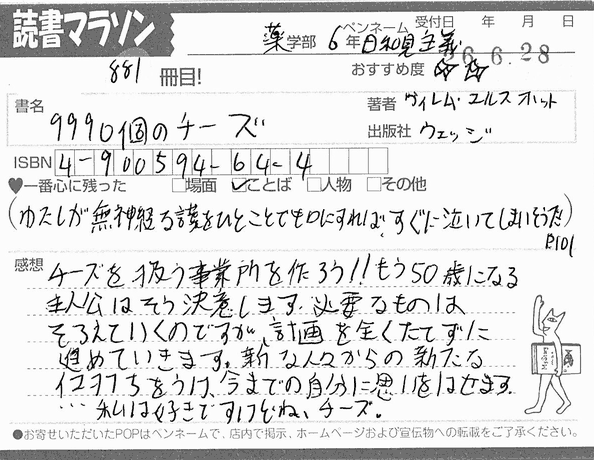 読書マラソン
ペンネーム 受付日 年 月 日
薬学部 6年 日和見主義
26.6.28
881 冊目! おすすめ度 ☆☆
書名 著者 ヴィレム・エルスホット
9990個のチーズ 出版社 ウェッジ
ISBN 4-900594-64-4
♥一番心に残った □場面 ☑ことば □人物 □その他
(わたしが無神経な語をひとことでも口にすれば、すぐに泣いてしまいそうだ)
P101
感想 チーズを扱う事業所を作ろう!!もう50歳になる
主人公はそう決意します。必要なものは
そろえていくのですが、計画を全くたてずに
進めていきます。新な人々からの新たな
をうけ、今までの自分に思いをはせます。
…私は好きですけどね、チーズ。
●お寄せいただいたPOPはペンネームで、店内で掲示、ホームページおよび宣伝物への転載をご了承ください。